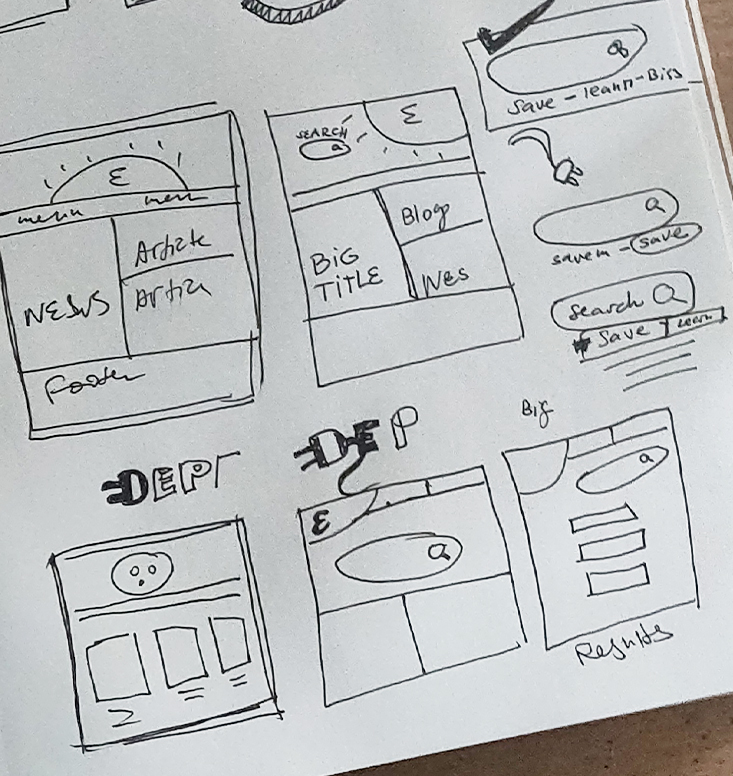 save - learn - Bis
ε
menu
menu
NESWS
Article
Articu
Footer
SEARCH
ε
BiG
TiTLE
Blog
Nes
save
search
Save
learn
DEPT
DEP
ε
Big
Results